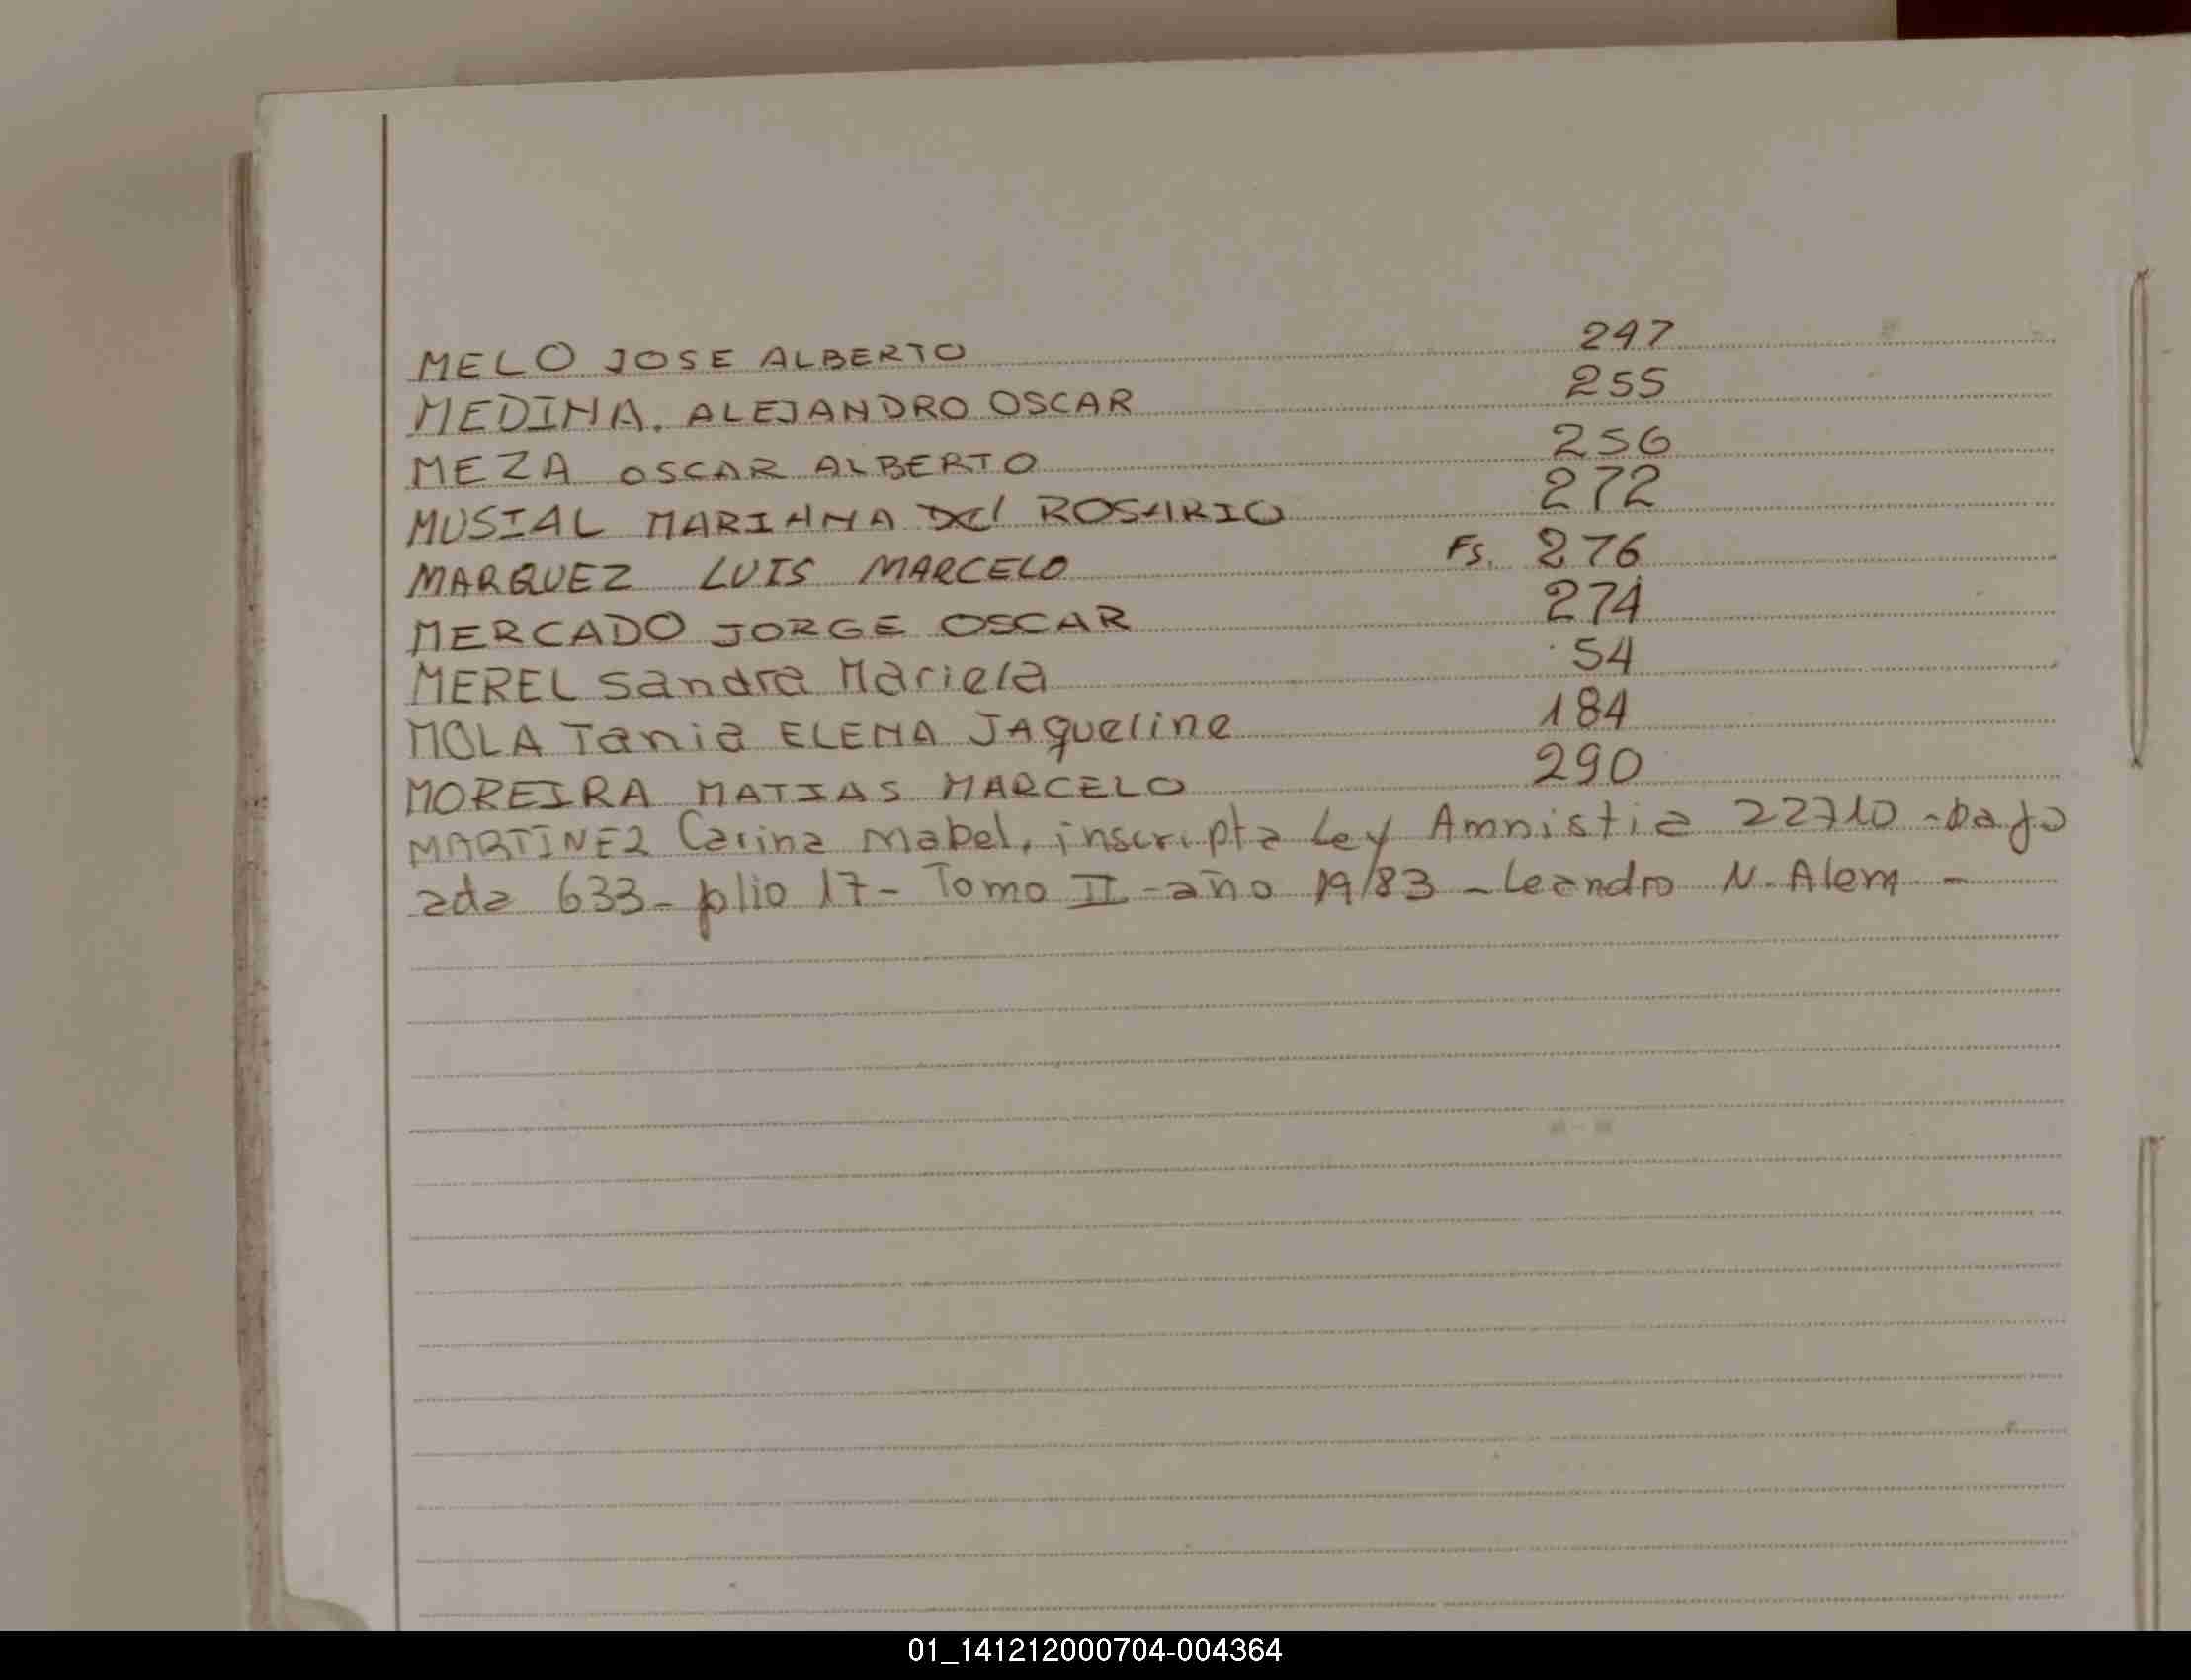 MELO JOSE ALBERTO 247
MEDINA. ALEJANDRO OSCAR 255
MEZA OSCAR ALBERTO 256
MUSIAL MARIANA DEl ROSARIO 272
MARQUEZ LUIS MARCELO Fs. 276
MERCADO JORGE OSCAR 274
MEREL Sandra Mariela 54
MOLA Tania ELENA JAqueline 184
MOREIRA MATIAS MARCELO 290
MARTINEZ Carina Mabel, inscripta Ley Amnistia 22710 - bajo
acta 633 - folio 17 - Tomo II - año 19/83 - Leandro N. Alem -
01_141212000704-004364